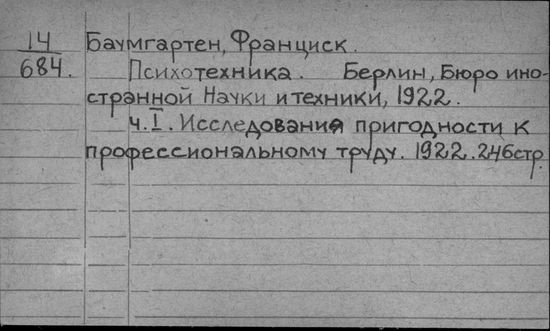 14 Баумгартен, Франциск.
684. Психотехника. Берлин, Бюро ино-
странной Науки и техники, 1922.
ч. I. Исследования пригодности к
профессиональному труду. 1922. 246стр.